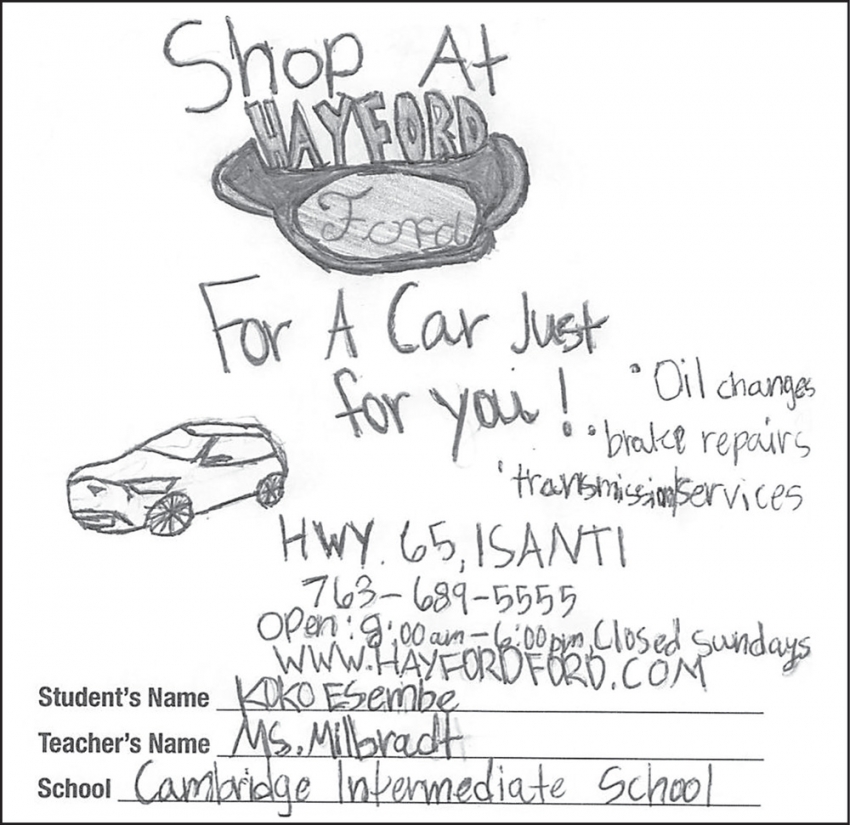 Shop At
HAYFORD
Ford
For A Car Just
for you!
• Oil changes
• brake repairs
• transmission/services
HWY. 65, ISANTI
763-689-5555
Open: 8:00am-6:00pm, Closed Sundays
WWW.HAYFORDFORD.COM
Student's Name KOKO Esembe
Teacher's Name Ms. Milbradt
School Cambridge Intermediate School